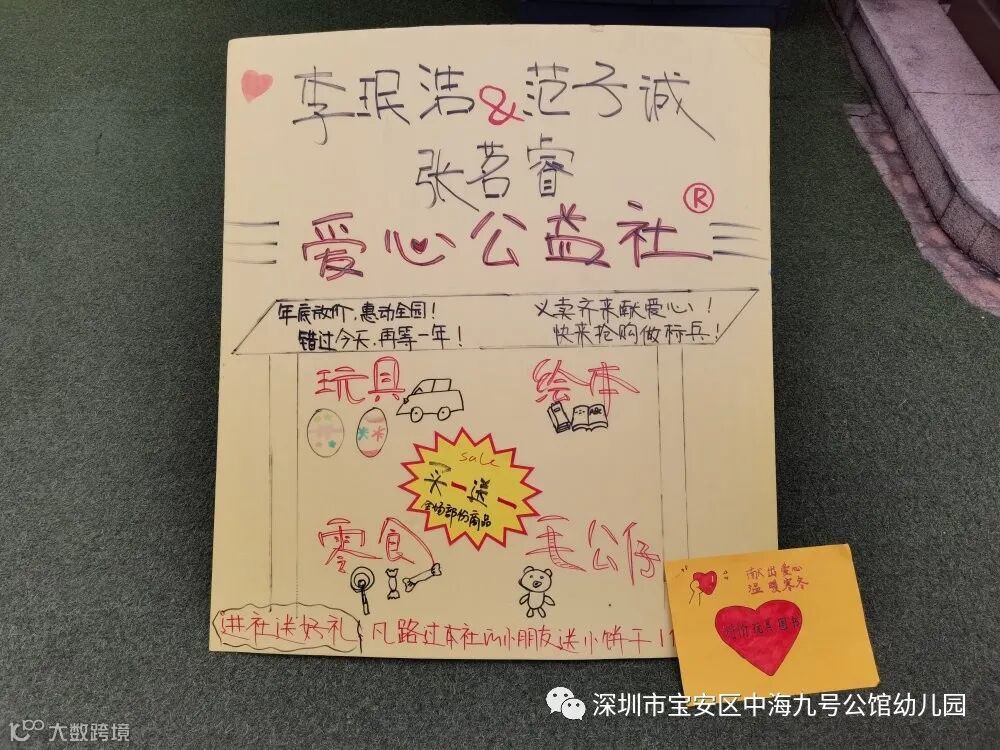 李珉洁&范子诚
张茗睿
爱心公益社®
年底放价，惠动全园！
错过今天，再等一年！
义卖齐来献爱心！
快来抢购做标兵！
玩具
绘本
ABC
sale
买一送一
全场部份商品
零食
毛公仔
进社送好礼
凡路过本社的小朋友送小饼干1
献出爱心
温暖寒冬
特价玩具图书
深圳市宝安区中海九号公馆幼儿园
大数跨境